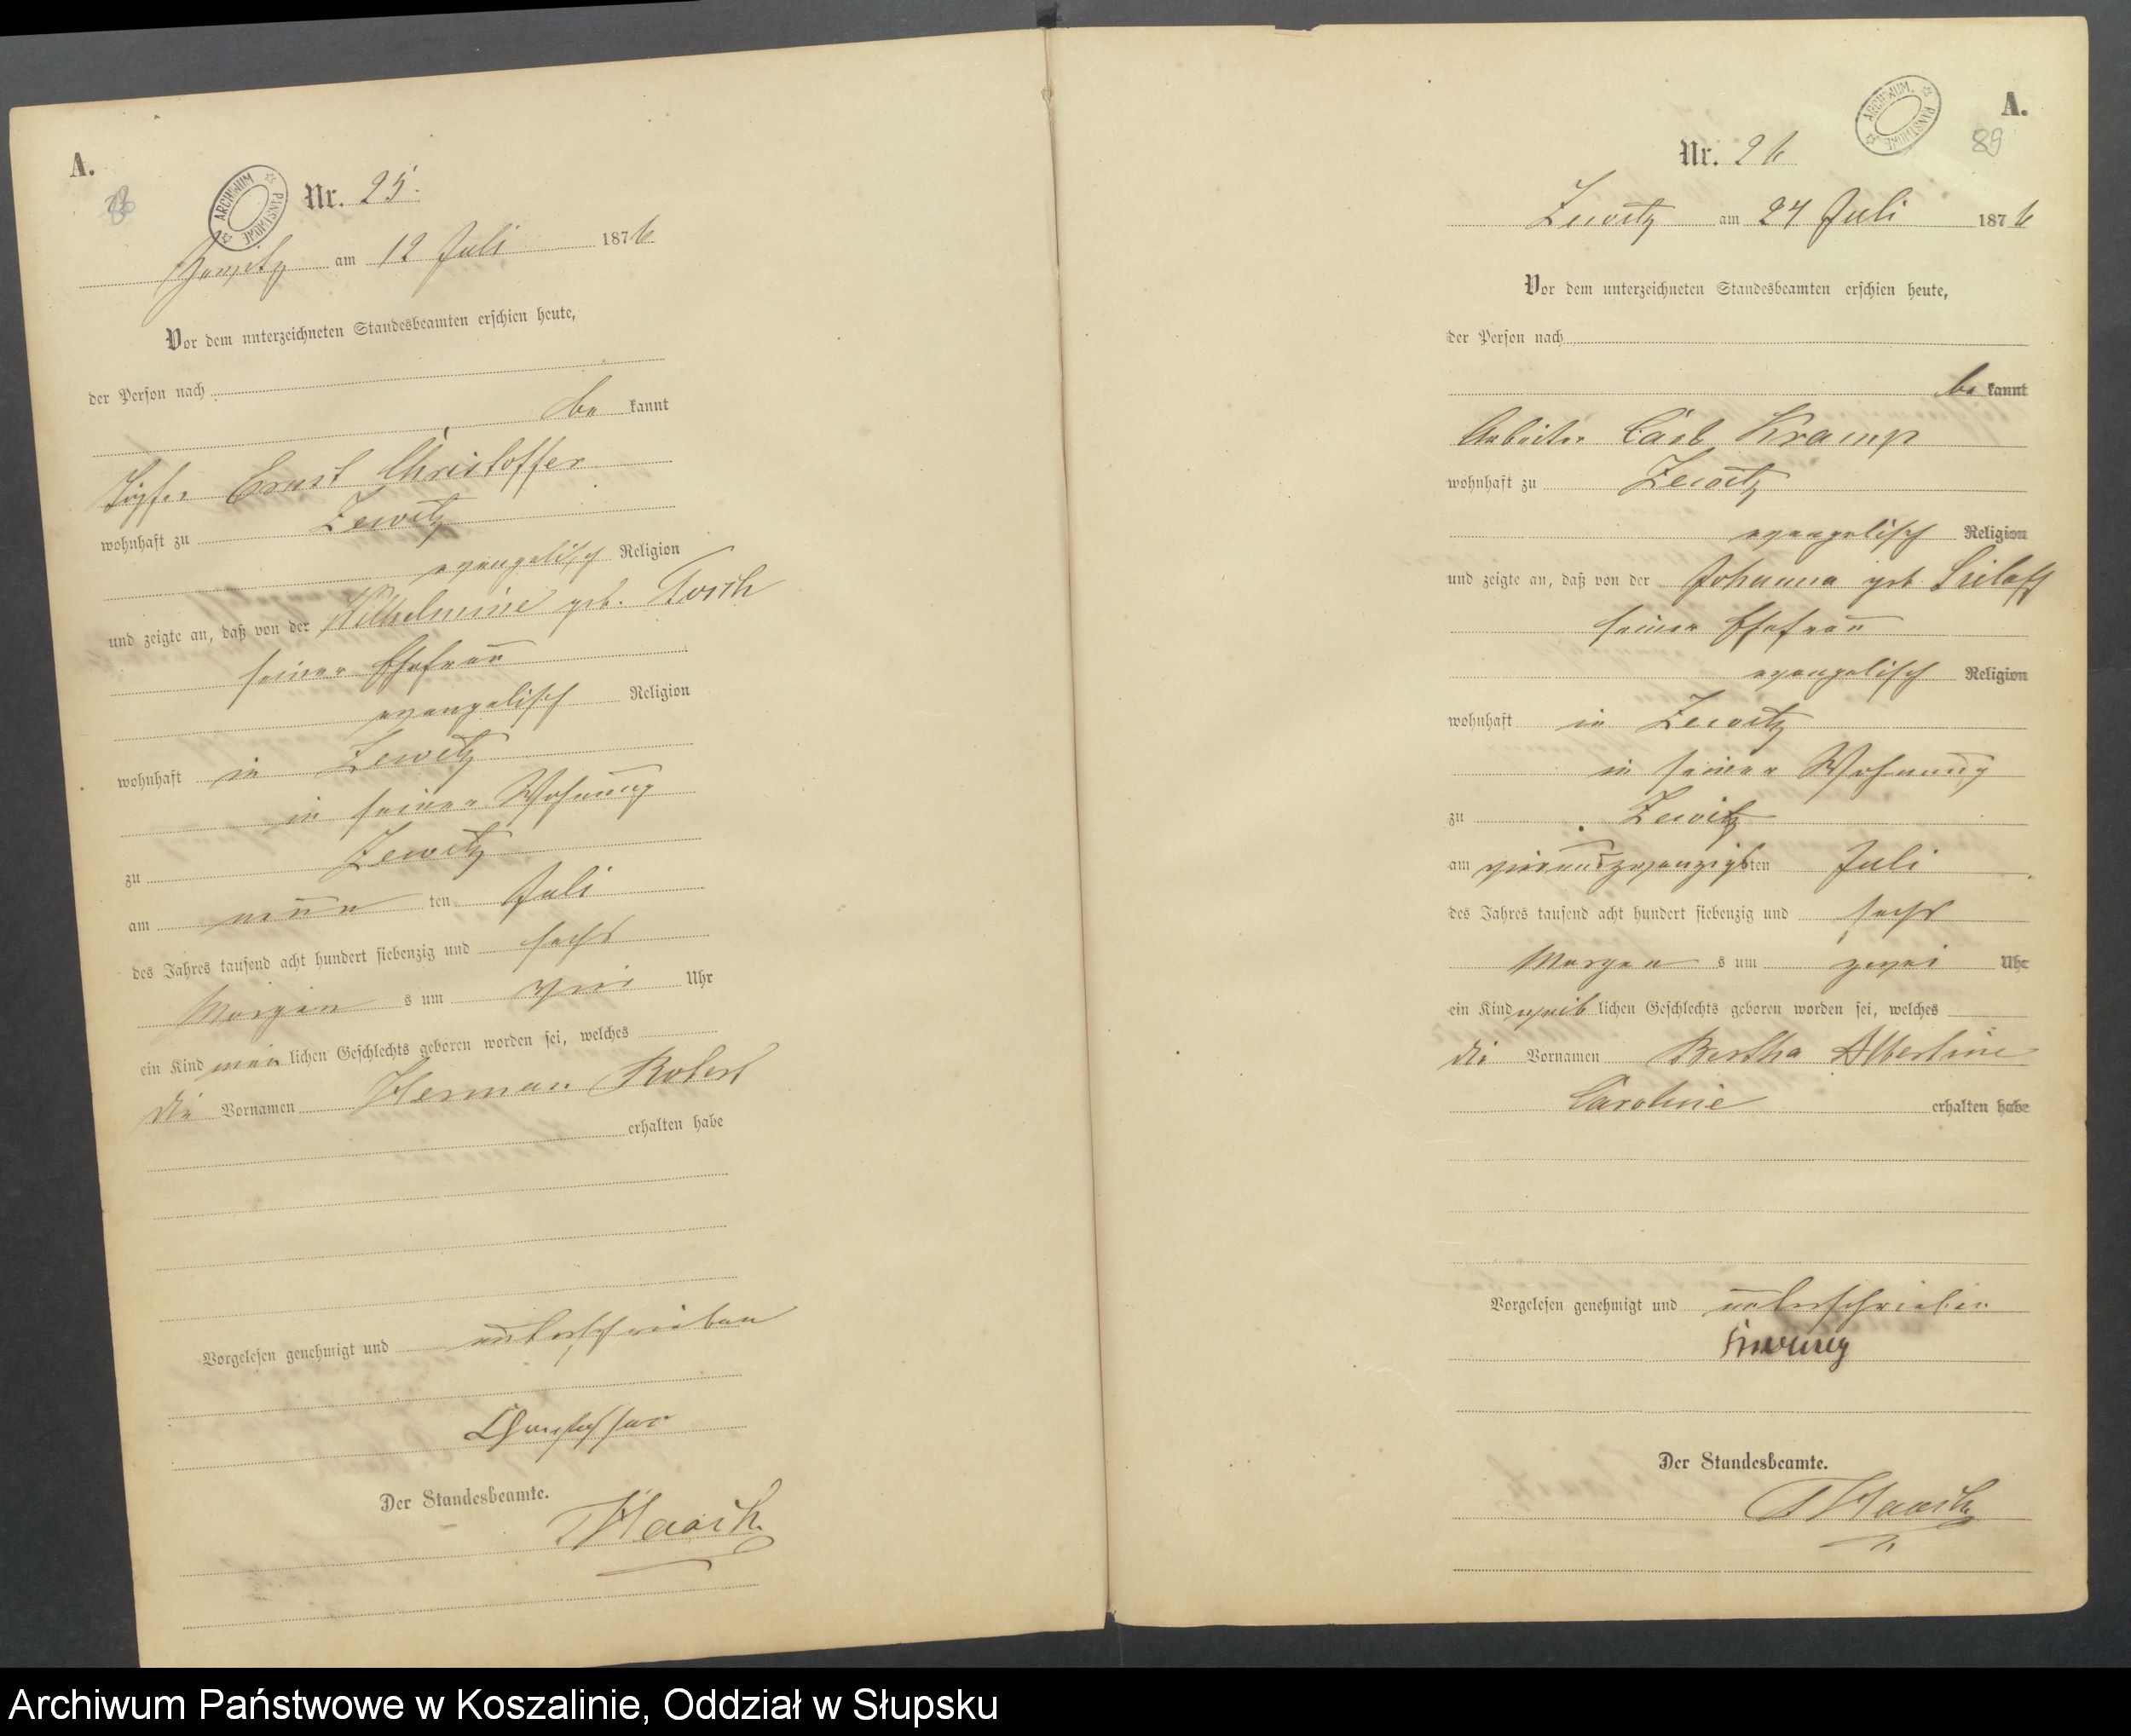 A.
ARCHIWUM PAŃSTWOWE
Nr. 25.
am 12 Juli 1876
Vor dem unterzeichneten Standesbeamten erschien heute,
der Person nach
be kannt
Töpfer Ernst Christoffer
wohnhaft zu Zewitz
evangelisch Religion
und zeigte an, daß von der Wilhelmine geb.
seiner Ehefrau
evangelisch Religion
wohnhaft in Zewitz
in seiner Wohnung
zu Zewitz
am neun ten Juli
des Jahres tausend acht hundert siebenzig und sechs
Morgen s um vier Uhr
ein Kind män lichen Geschlechts geboren worden sei, welches
die Vornamen Herman Robert
erhalten habe
Vorgelesen genehmigt und unterschrieben
Christoffer
Der Standesbeamte.
Haack
A.
ARCHIWUM PAŃSTWOWE
89
Nr. 26
Zewitz am 24 Juli 1876
Vor dem unterzeichneten Standesbeamten erschien heute,
der Person nach
be kannt
Arbeiter Carl Kramp
wohnhaft zu Zewitz
evangelisch Religion
und zeigte an, daß von der Johanna geb.
seiner Ehefrau
evangelisch Religion
wohnhaft in Zewitz
in seiner Wohnung
zu Zewitz
am vierundzwanzigsten Juli
des Jahres tausend acht hundert siebenzig und sechs
Morgen s um zwei Uhr
ein Kind weib lichen Geschlechts geboren worden sei, welches
die Vornamen Bertha Albertine
Caroline erhalten habe
Vorgelesen genehmigt und unterschrieben
Der Standesbeamte.
Haack
Archiwum Państwowe w Koszalinie, Oddział w Słupsku